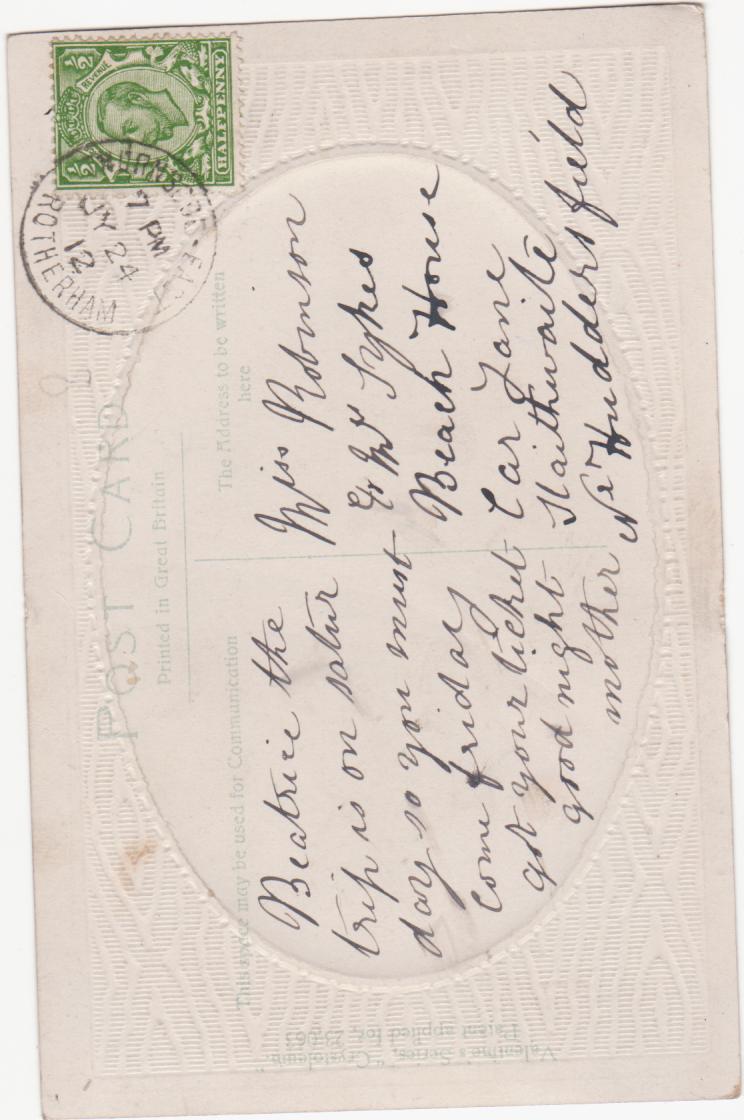 POST CARD
Printed in Great Britain
This space may be used for Communication
The Address to be written
here
Beatrice the
trip is on satur
day so you must
come friday
got your ticket
good night
mother
Miss Robinson
Mrs Sykes
Beach House
Car Lane
Slaithwaite
Nr Huddersfield
REVENUE
½
½
HALFPENNY
7 PM
JY 24
12
ROTHERHAM
Valentine's Series, "Crystoleum."
Patent applied for, 23,063